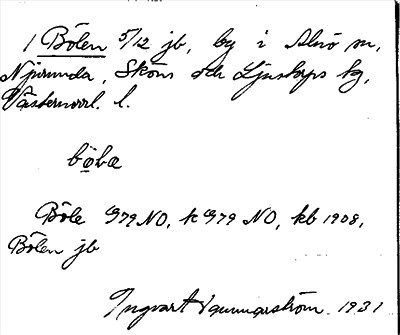 1 Bölen 5/12 jb, by i Alnö sn,
Njurunda, Sköns och Ljustorps tg,
Västernorrl. l.
bøla
Böle G79 NO, k G79 NO, kb 1908,
Bölen jb
Ingvart Gunnarström 1931